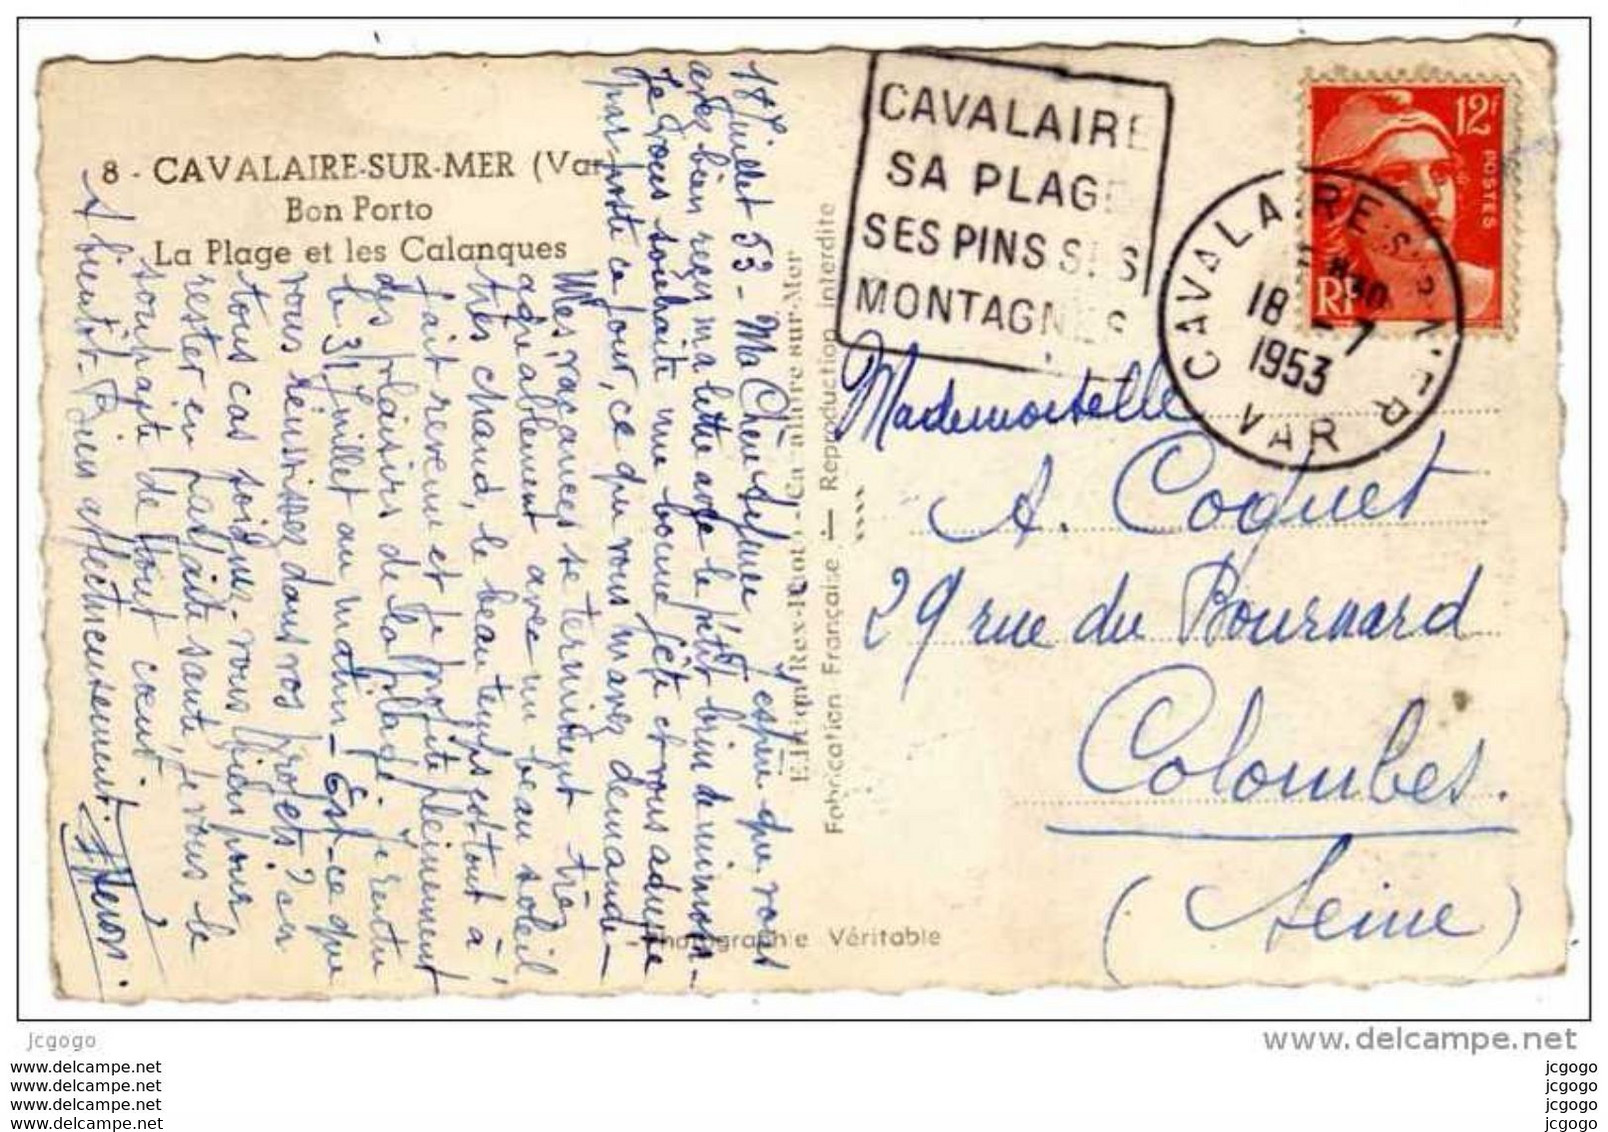 8 - CAVALAIRE-SUR-MER (Var
Bon Porto
La Plage et les Calanques
18 Juillet 53 - Ma Chère
avez bien reçu ma lettre avec le petit brin de mimosa -
Je vous souhaite une bonne fête et vous adresse
par poste ce jour, ce que vous m'avez demandé -
Mes vacances se terminent très
agréablement avec un beau soleil
très chaud, le beau temps est tout à
fait revenu et je profite pleinement
des plaisirs de la plage. Je rentre
le 31 Juillet au matin - Est-ce que
vous réussissez dans vos projets? en
tous cas soignez-vous bien pour
rester en parfaite santé, je vous le
souhaite de tout cœur.
A bientôt - Bien affectueusement.
Edition Rex - Cavalaire-sur-Mer
Fabrication Française - Reproduction interdite
Photographie Véritable
CAVALAIRE
SA PLAGE
SES PINS SES
MONTAGNES
CAVALAIRE-S-MER
18 -7
1953
VAR
12F
POSTES
RF
Mademoiselle
A. Coquet
29 rue du Bournard
Colombes.
(Seine)
jcgogo
www.delcampe.net
www.delcampe.net
www.delcampe.net
www.delcampe.net
www.delcampe.net
jcgogo
jcgogo
jcgogo
jcgogo